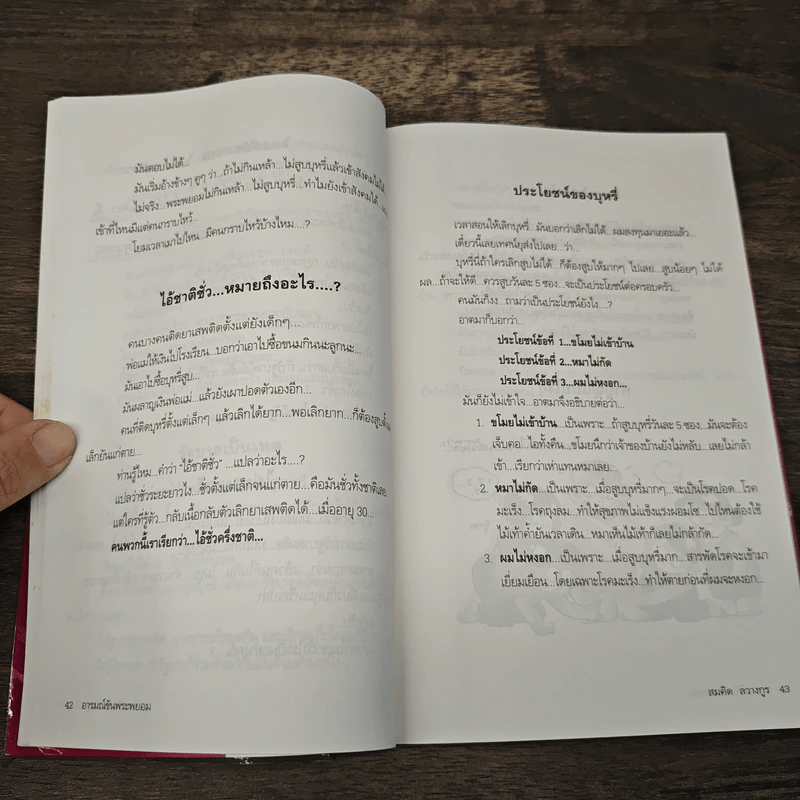 มันตอบไม่ได้...
มันเริ่มอ้างข้างๆ คูๆ ว่า...ถ้าไม่กินเหล้า...ไม่สูบบุหรี่แล้วเข้าสังคมไม่ได้
ไม่จริง...พระพยอมไม่กินเหล้า...ไม่สูบบุหรี่...ทำไมยังเข้าสังคมได้
เข้าที่ไหนมีแต่คนกราบไหว้...
โยมเวลาเมาไปไหน...มีคนกราบไหว้บ้างไหม....?
ไอ้ชาติชั่ว...หมายถึงอะไร....?
คนบางคนติดยาเสพติดตั้งแต่ยังเด็กๆ...
พ่อแม่ให้เงินไปโรงเรียน...บอกว่าเอาไปซื้อขนมกินนะลูกนะ...
มันเอาไปซื้อบุหรี่สูบ...
มันผลาญเงินพ่อแม่...แล้วยังเผาปอดตัวเองอีก...
คนที่ติดบุหรี่ตั้งแต่เล็กๆ แล้วเลิกได้ยาก...พอเลิกยาก...ก็ต้องสูบตั้งแต่
เล็กยันแก่ตาย...
ท่านรู้ไหม...คำว่า "ไอ้ชาติชั่ว"...แปลว่าอะไร....?
แปลว่าชั่วระยะยาวไง...ชั่วตั้งแต่เล็กจนแก่ตาย...คือมันชั่วทั้งชาติเลย
แต่ใครที่รู้ตัว...กลับเนื้อกลับตัวเลิกยาเสพติดได้...เมื่ออายุ 30...
คนพวกนี้เราเรียกว่า...ไอ้ชั่วครึ่งชาติ...
42 อารมณ์ขันพระพยอม
ประโยชน์ของบุหรี่
เวลาสอนให้เลิกบุหรี่...มันบอกว่าเลิกไม่ได้...ผมลงทุนมาเยอะแล้ว...
เดี๋ยวนี้เลยเทศน์ยุส่งไปเลย...ว่า
บุหรี่นี่ถ้าใครเลิกสูบไม่ได้...ก็ต้องสูบให้มากๆ ไปเลย...สูบน้อยๆ ไม่ได้
ผล...ถ้าจะให้ดี...ควรสูบวันละ 5 ซอง...จะเป็นประโยชน์ต่อครอบครัว...
คนมันก็งง...ถามว่าเป็นประโยชน์ยังไง....?
อาตมาก็บอกว่า...
ประโยชน์ข้อที่ 1...ขโมยไม่เข้าบ้าน
ประโยชน์ข้อที่ 2...หมาไม่กัด
ประโยชน์ข้อที่ 3...ผมไม่หงอก...
มันก็ยังไม่เข้าใจ...อาตมาจึงอธิบายต่อว่า...
1. ขโมยไม่เข้าบ้าน...เป็นเพราะ...ถ้าสูบบุหรี่วันละ 5 ซอง...มันจะต้อง
เจ็บคอ...ไอทั้งคืน...ขโมยนึกว่าเจ้าของบ้านยังไม่หลับ...เลยไม่กล้า
เข้า...เรียกว่าเห่าแทนหมาเลย...
2. หมาไม่กัด...เป็นเพราะ...เมื่อสูบบุหรี่มากๆ...จะเป็นโรคปอด...โรค
มะเร็ง...โรคถุงลม...ทำให้สุขภาพไม่แข็งแรงผอมโซ...ไปไหนต้องใช้
ไม้เท้าค้ำยันเวลาเดิน...หมาเห็นไม้เท้าก็เลยไม่กล้ากัด...
3. ผมไม่หงอก...เป็นเพราะ...เมื่อสูบบุหรี่มาก...สารพัดโรคจะเข้ามา
เยี่ยมเยือน...โดยเฉพาะโรคมะเร็ง...ทำให้ตายก่อนที่ผมจะหงอก...
สมคิด ลวางกูร 43